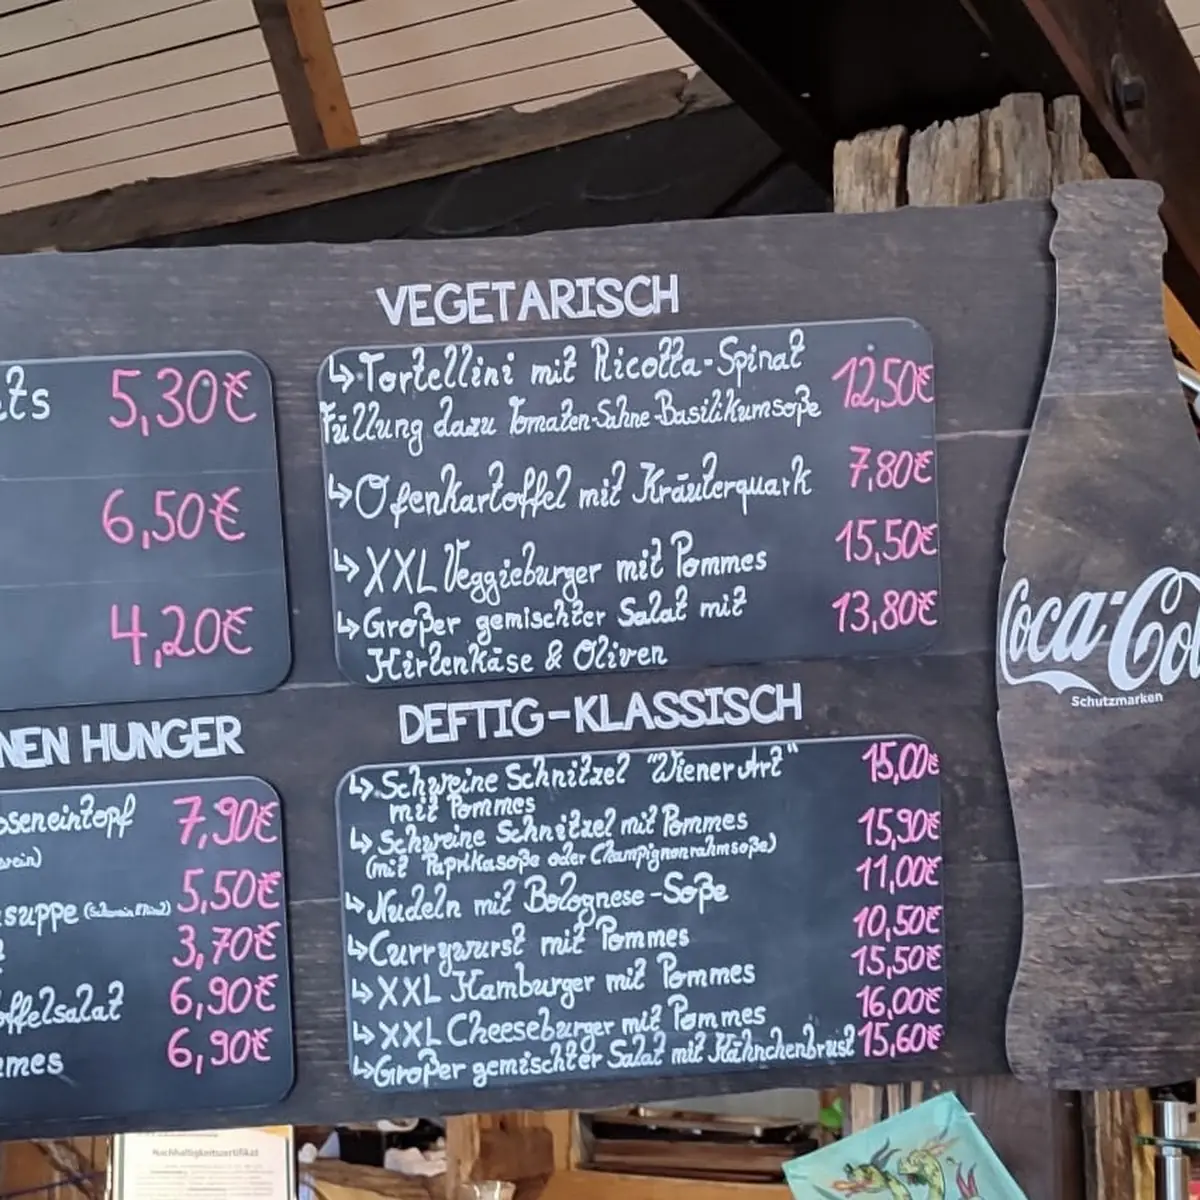 ts 5,30€
6,50€
4,20€
NEN HUNGER
oseneintopf 7,90€
5,50€
suppe
3,70€
offelsalat 6,90€
mes 6,90€
VEGETARISCH
↳Tortellini mit Ricotta-Spinat 12,50€
Füllung dazu Tomaten-Sahne-Basilikumsoße
↳Ofenkartoffel mit Kräuterquark 7,80€
↳XXL Veggieburger mit Pommes 15,50€
↳Großer gemischter Salat mit 13,80€
Hirtenkäse & Oliven
DEFTIG-KLASSISCH
↳Schweine Schnitzel "Wiener Art" 15,00€
mit Pommes
↳Schweine Schnitzel mit Pommes 15,90€
(mit Paprikasoße oder Champignonrahmsoße)
↳Nudeln mit Bolognese-Soße 11,00€
↳Currywurst mit Pommes 10,50€
↳XXL Hamburger mit Pommes 15,50€
↳XXL Cheeseburger mit Pommes 16,00€
↳Großer gemischter Salat mit Hähnchenbrust 15,60€
Coca-Col
Schutzmarken
Nachhaltigkeitszertifikat